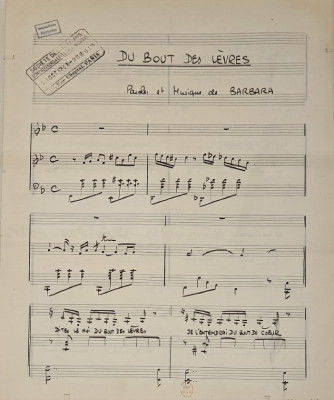 DU BOUT DES LÈVRES
Paroles et Musique de BARBARA
DITES LE MOI DU BOUT DES LÈVRES
JE L'ENTENDRAI DU BOUT DU COEUR